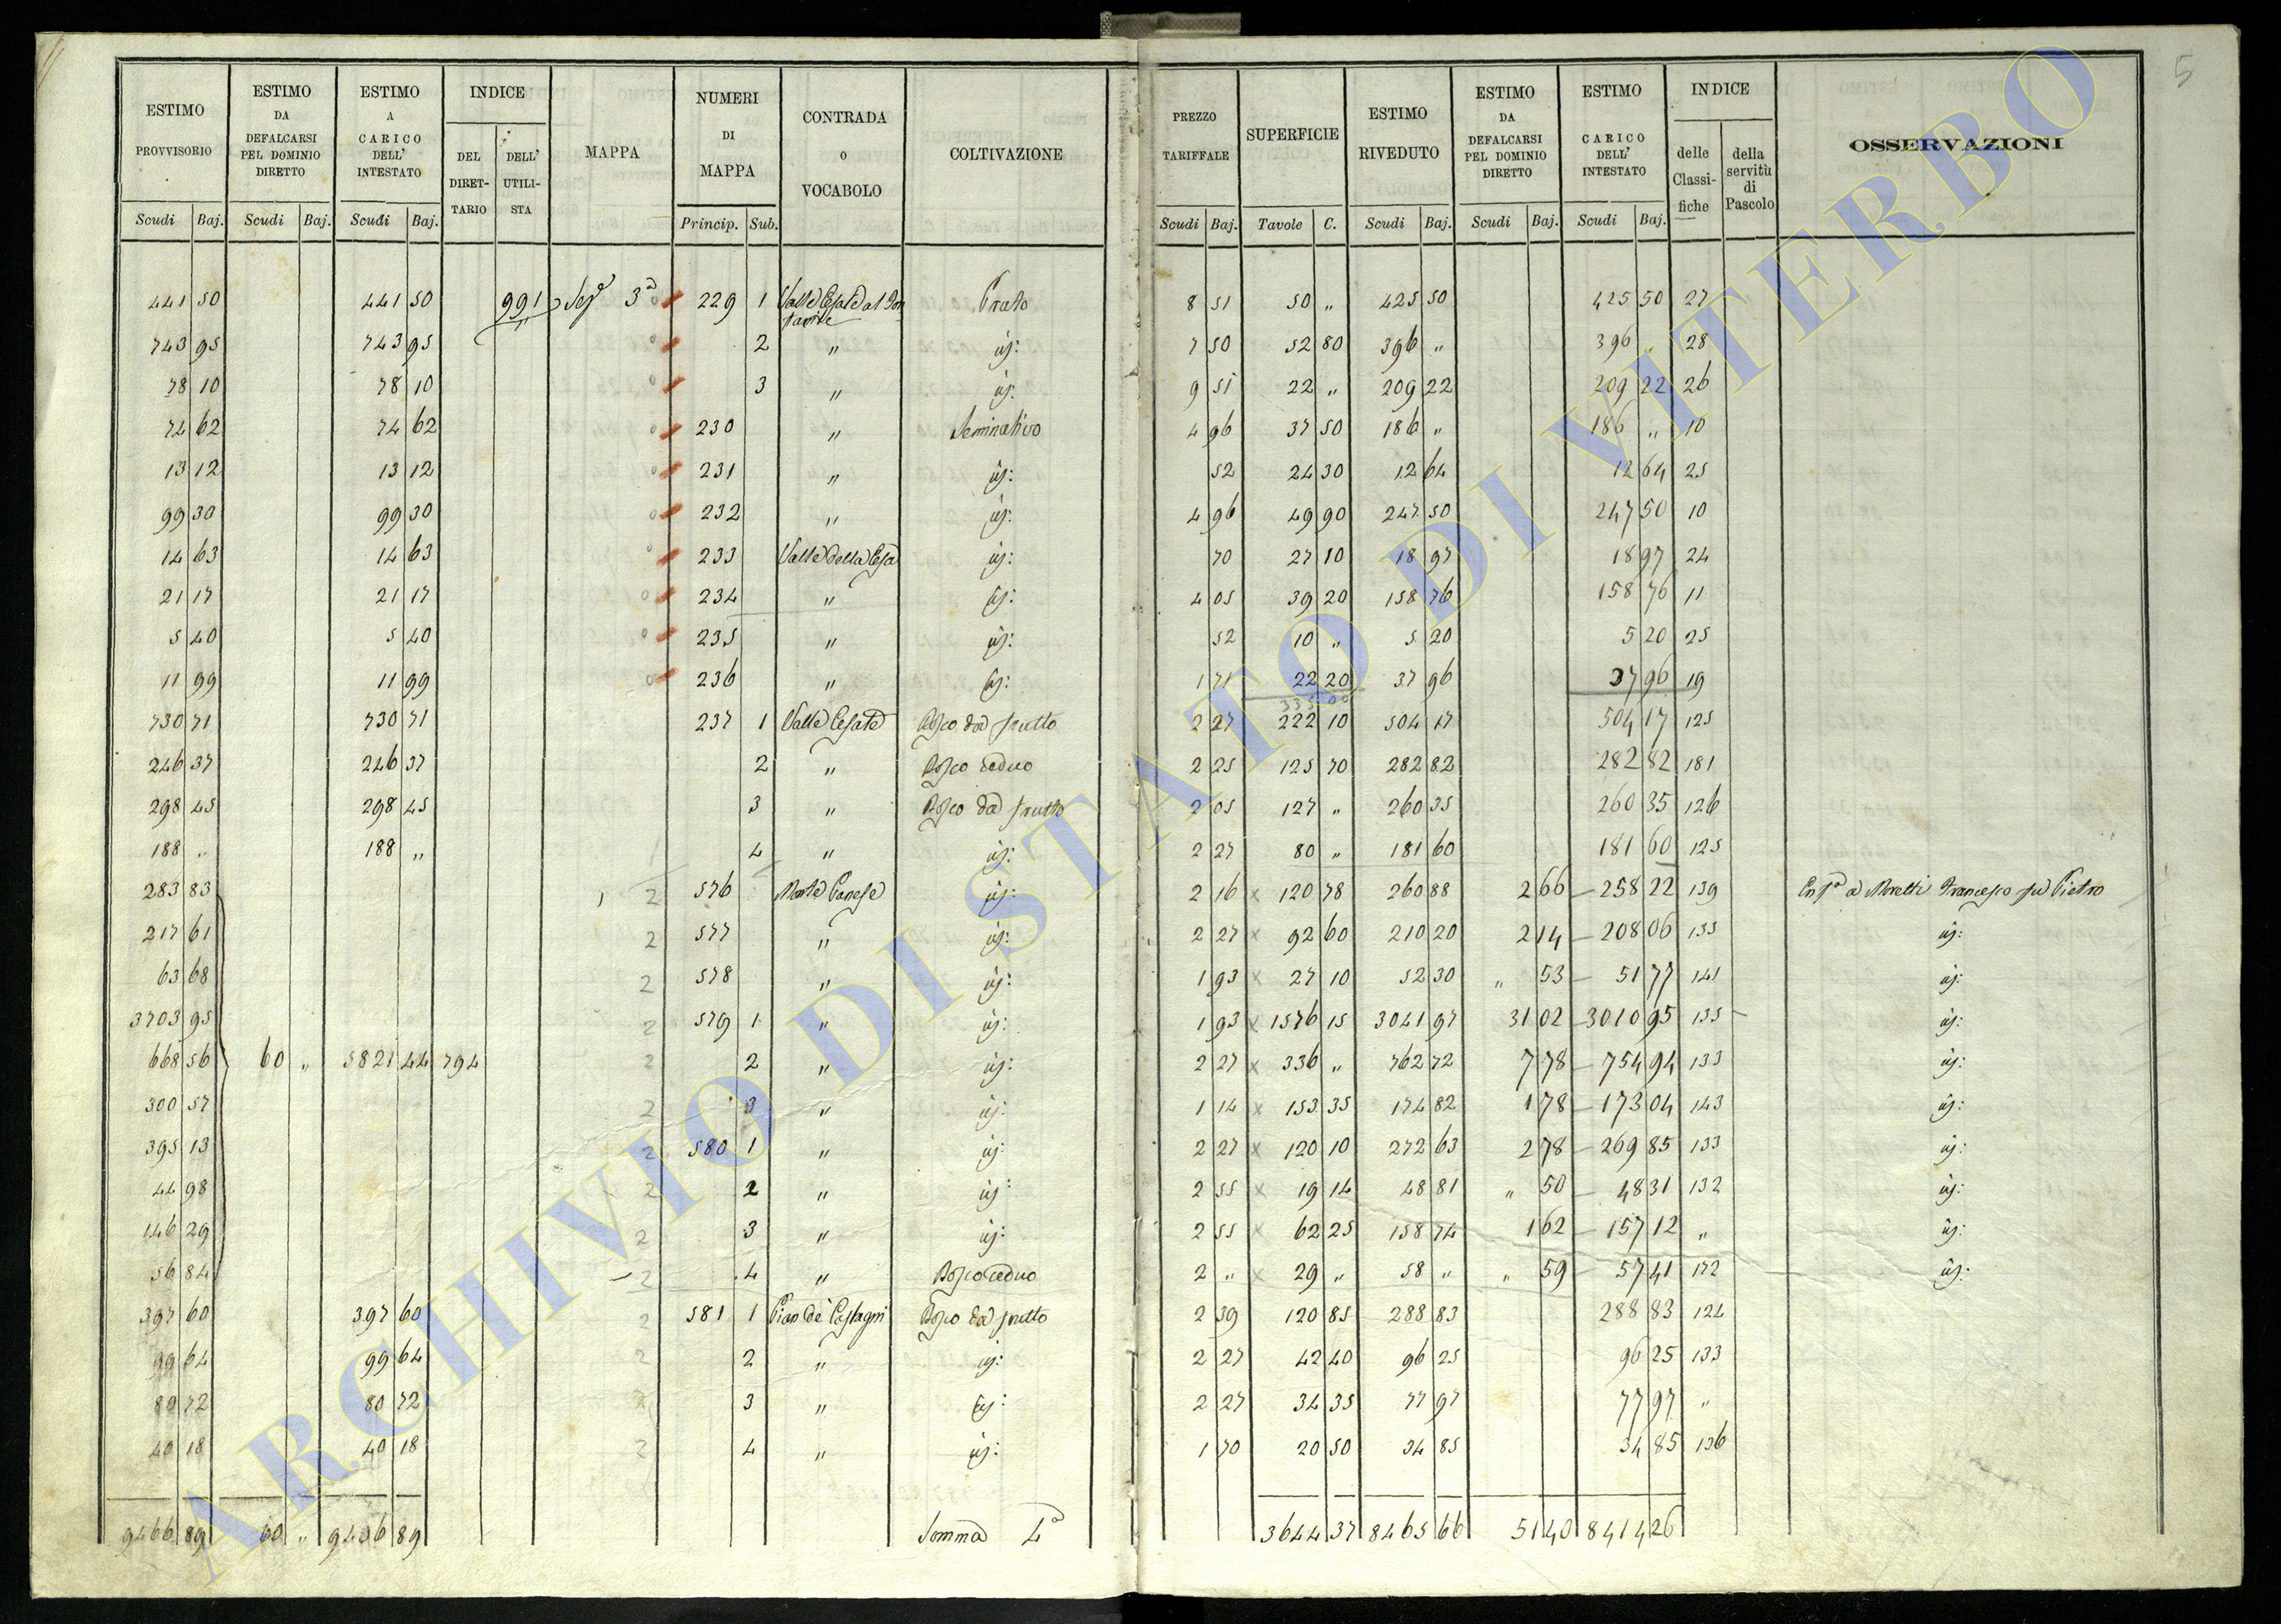 5
ESTIMO PROVVISORIO Scudi Baj. | ESTIMO DA DEFALCARSI PEL DOMINIO DIRETTO Scudi Baj. | ESTIMO A CARICO DELL' INTESTATO Scudi Baj. | INDICE DEL DIRET- TARIO | DELL' UTILI- STA | MAPPA | NUMERI DI MAPPA Princip. Sub. | CONTRADA O VOCABOLO | COLTIVAZIONE | PREZZO TARIFFALE Scudi Baj. | SUPERFICIE Tavole C. | ESTIMO RIVEDUTO Scudi Baj. | ESTIMO DA DEFALCARSI PEL DOMINIO DIRETTO Scudi Baj. | ESTIMO CARICO DELL' INTESTATO Scudi Baj. | INDICE delle Classi- fiche | della servitù di Pascolo | OSSERVAZIONI
441 50 441 50 991 Sezᵉ 3ª 229 1 Valle Cesate al Fon tanile Prato 8 51 50 " 425 50 425 50 27
743 95 743 95 2 " id: 7 50 52 80 396 " 396 " 28
78 10 78 10 3 " id: 9 51 22 " 209 22 209 22 26
74 62 74 62 230 " Seminativo 4 96 37 50 186 " 186 " 10
13 12 13 12 231 " id: 52 24 30 12 64 12 64 25
99 30 99 30 232 " id: 4 96 49 90 247 50 247 50 10
14 63 14 63 233 Valle della Cesa id: 70 27 10 18 97 18 97 24
21 17 21 17 234 " id: 4 05 39 20 158 76 158 76 11
5 40 5 40 235 " id: 52 10 " 5 20 5 20 25
11 99 11 99 236 " id: 1 71 22 20 37 96 37 96 19
730 71 730 71 237 1 Valle Cesate Bosco da frutto 2 27 222 10 504 17 504 17 125
246 37 246 37 2 " Bosco ceduo 2 25 125 70 282 82 282 82 181
298 45 298 45 3 " Bosco da frutto 2 05 127 " 260 35 260 35 126
188 " 188 " 4 " id: 2 27 80 " 181 60 181 60 125
283 83 2 576 Monte id: 2 16 x 120 78 260 88 2 66 258 22 139 Enfᵃ a Moretti Francesco fu Pietro
217 61 2 577 " id: 2 27 x 92 60 210 20 2 14 208 06 133 id:
63 68 2 578 " id: 1 93 x 27 10 52 30 " 53 51 77 141 id:
3703 95 2 579 1 " id: 1 93 x 1576 15 3041 97 31 02 3010 95 135 id:
668 56 60 " 5821 44 794 2 2 " id: 2 27 x 336 " 762 72 7 78 754 94 133 id:
300 57 2 3 " id: 1 14 x 153 35 174 82 1 78 173 04 143 id:
395 13 2 580 1 " id: 2 27 x 120 10 272 63 2 78 269 85 133 id:
44 98 2 2 " id: 2 55 x 19 14 48 81 " 50 48 31 132 id:
146 29 2 3 " id: 2 55 x 62 25 158 74 1 62 157 12 " id:
56 84 2 4 " Bosco ceduo 2 " x 29 " 58 " " 59 57 41 172 id:
397 60 397 60 2 581 1 Pian de' Castagni Bosco da frutto 2 39 120 85 288 83 288 83 124
99 64 99 64 2 2 " id: 2 27 42 40 96 25 96 25 133
80 72 80 72 2 3 " id: 2 27 34 35 77 97 77 97 "
40 18 40 18 2 4 " id: 1 70 20 50 34 85 34 85 136
9466 89 60 " 9406 89 Somma 4ª 3644 37 8465 66 51 40 8414 26
ARCHIVIO DI STATO DI VITERBO